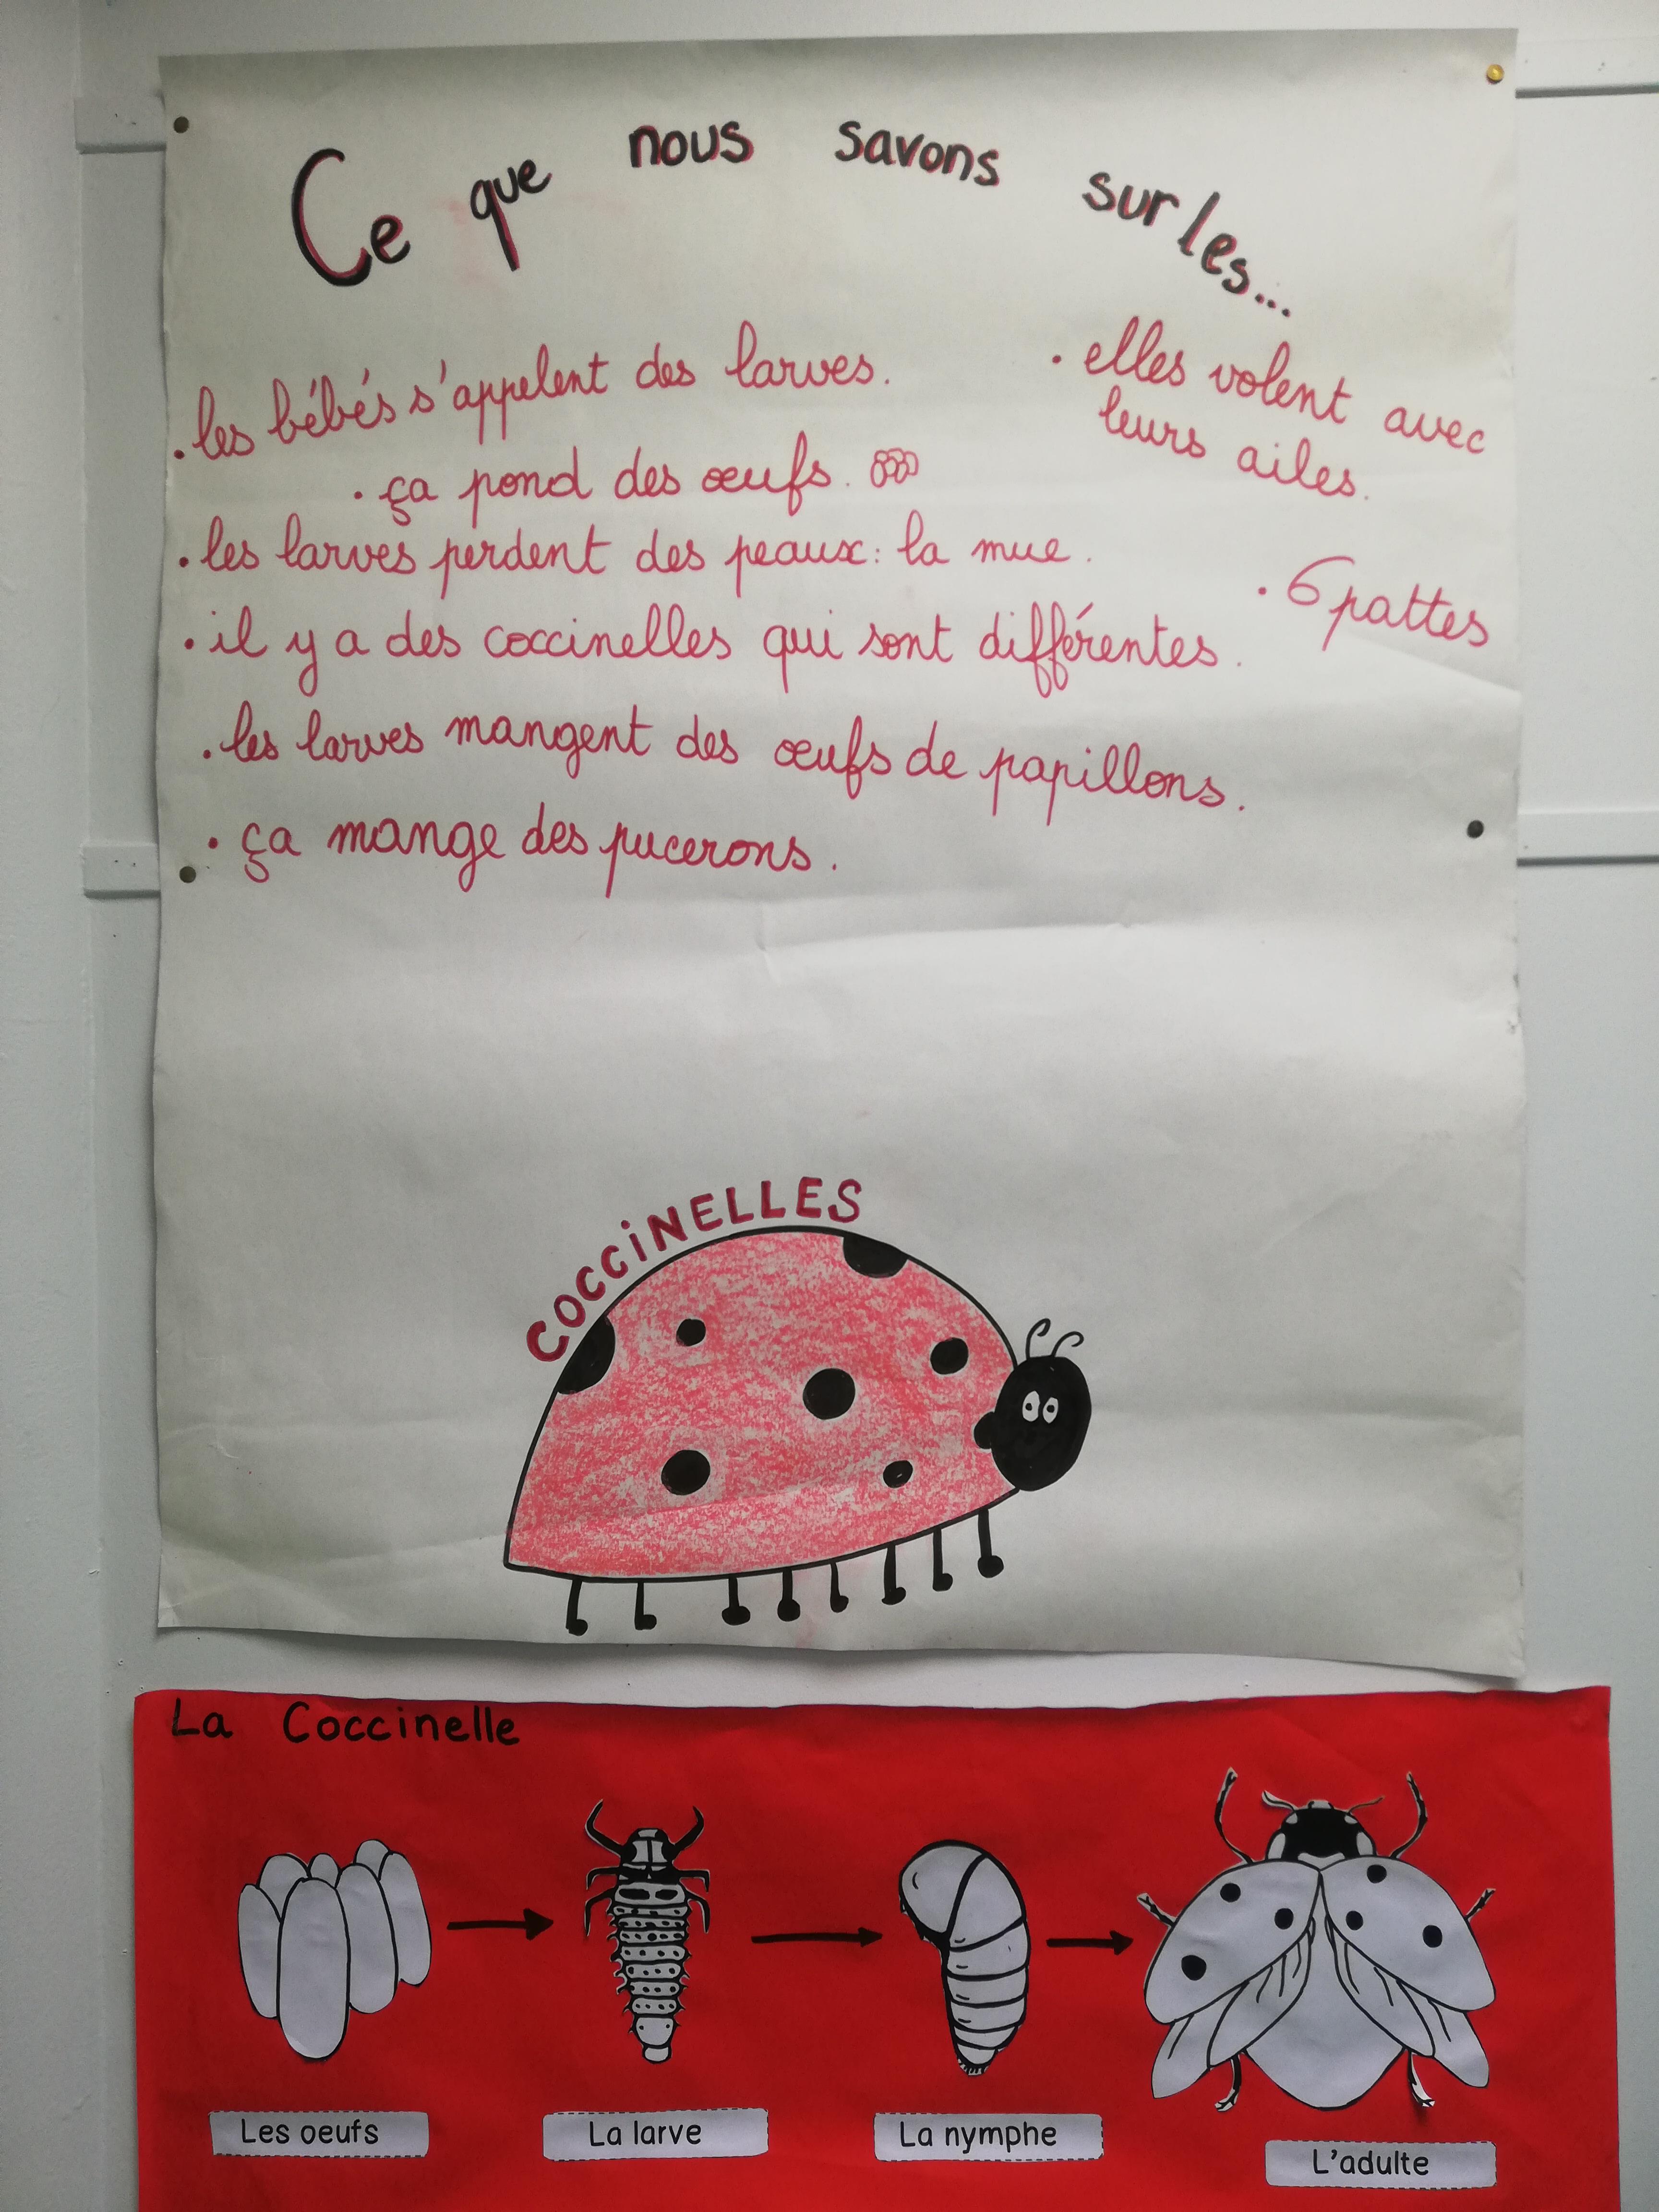 Ce que nous savons sur les...
. les bébés s'appelent des larves.
. ça pond des œufs.
. les larves perdent des peaux : la mue.
. il y a des coccinelles qui sont différentes.
. les larves mangent des œufs de papillons.
. ça mange des pucerons.
. elles volent avec
leurs ailes.
. 6 pattes
COCCiNELLES
La Coccinelle
Les oeufs
La larve
La nymphe
L'adulte